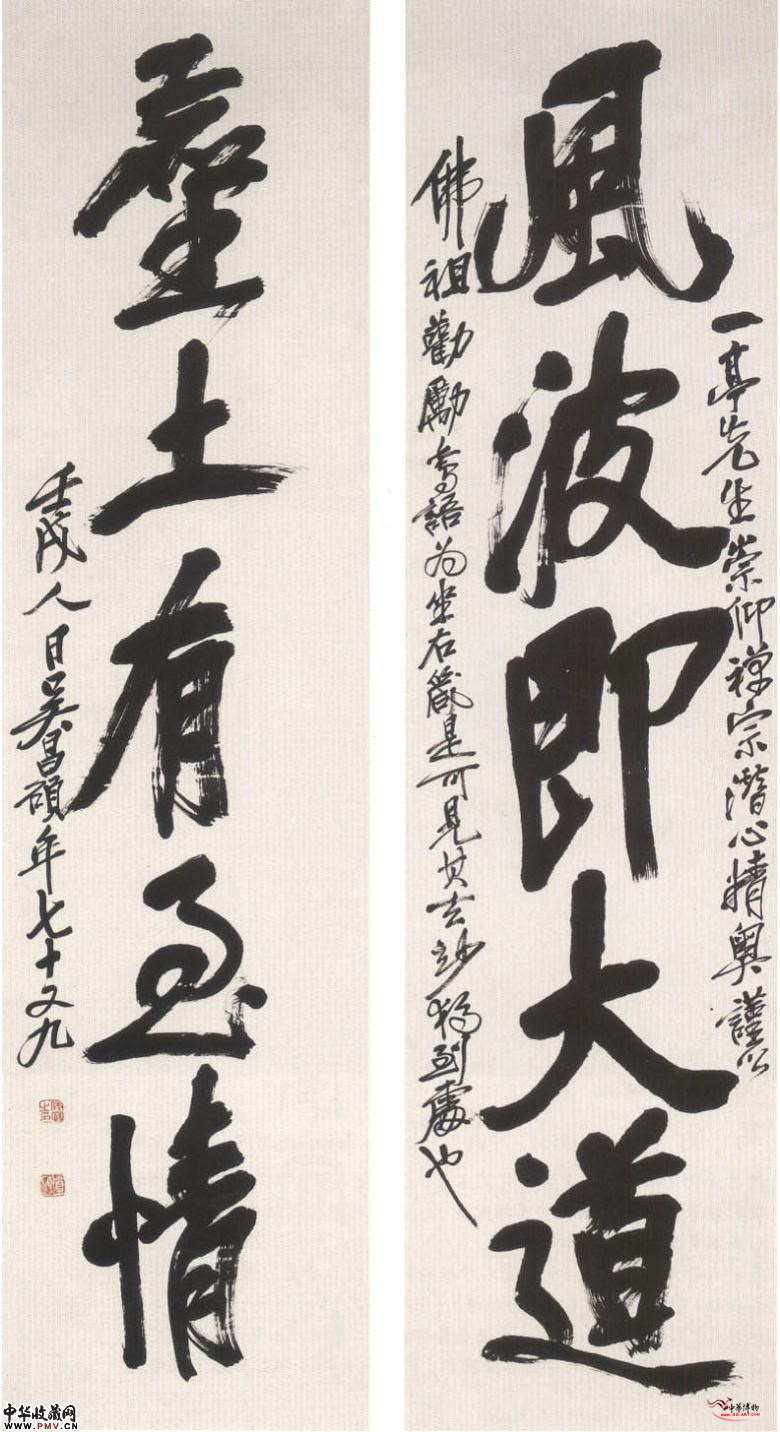 風波即大道
一亭先生崇仰禪宗潛心精奧謹以
佛祖勸勵等語为坐右箴是可見其玄妙獨到處也
塵土有至情
壬戌人日吳昌碩年七十又九
中华收藏网
www.PMV.CN
中华博物